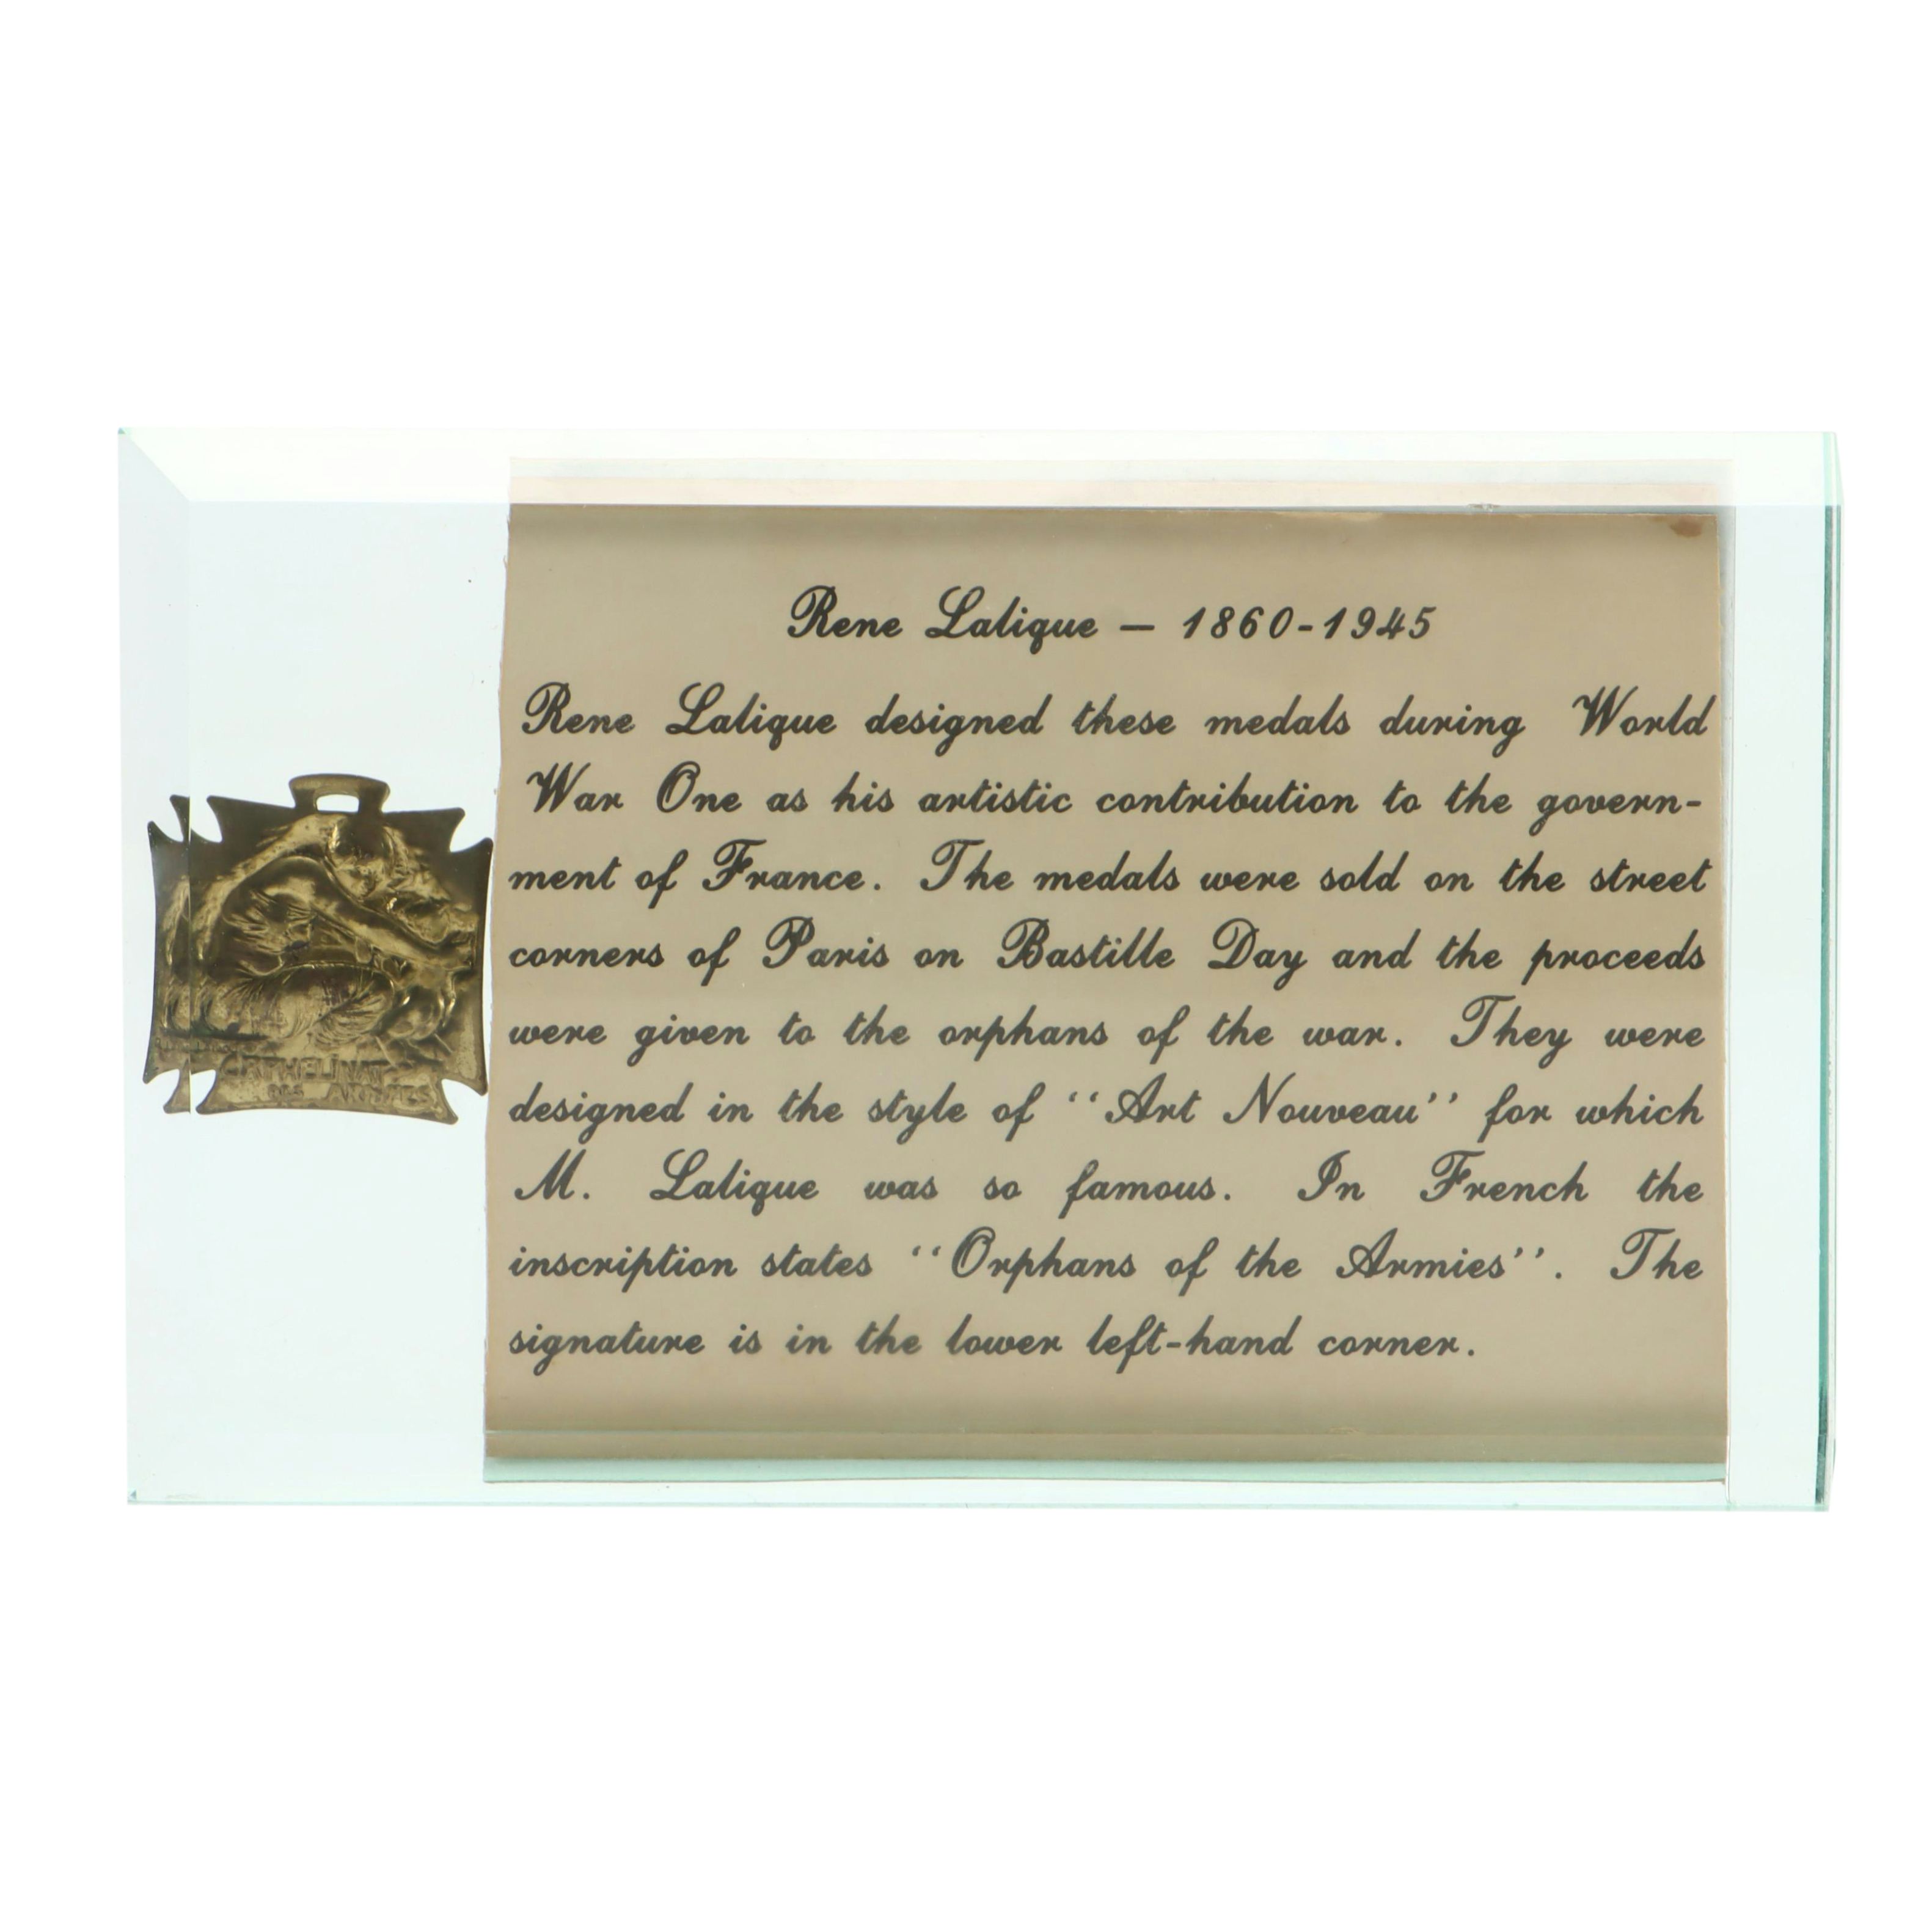 Rene Lalique — 1860-1945
Rene Lalique designed these medals during World
War One as his artistic contribution to the govern-
ment of France. The medals were sold on the street
corners of Paris on Bastille Day and the proceeds
were given to the orphans of the war. They were
designed in the style of "Art Nouveau" for which
M. Lalique was so famous. In French the
inscription states "Orphans of the Armies". The
signature is in the lower left-hand corner.
ORPHELINAT
DES ARMEES